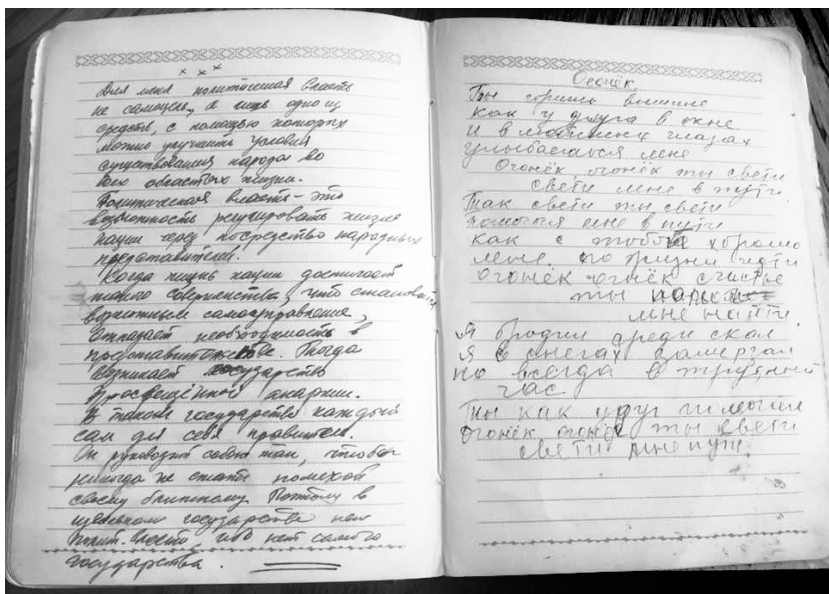 × × ×
Для меня политическая власть
не самоцель, а лишь одно из
средств, с помощью которых
можно улучшить условия
существования народа во
всех областях жизни.
Политическая власть - это
возможность регулировать жизнь
нации через посредство народных
представителей.
Когда жизнь нации достигает
такого совершенства, что становится
возможным самоуправление,
отпадает необходимость в
представительстве. Тогда
возникает государство
просвещённой анархии.
В таком государстве каждый
сам для себя правитель.
Он руководит собой так, чтобы
никогда не стать помехой
своему ближнему. Поэтому в
идеальном государстве нет
полит. власти, ибо нет самого
государства.
Огонёк
Ты горишь
как у друга в окне
И в глазах
улыбаешься мне
Огонёк, огонёк ты свети
свети мне в пути
Так свети ты свети
мне в пути
как с тобой хорошо
мне по жизни идти
огонёк огнёк счастье
ты
мне найти
Я бродил среди скал
Я в снегах замерзал
но всегда в трудный
час
Ты как друг
огонёк огонёк ты свети
свети мне